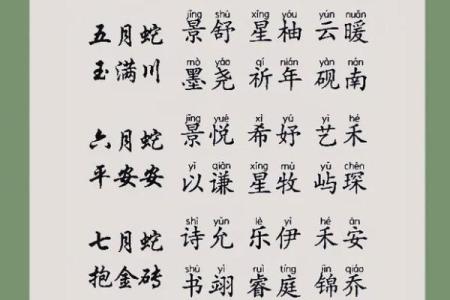 jǐng shū xīng yòu yún nuǎn
五月蛇 景舒 星柚 云暖
mò yáo qí nián yàn nán
玉满川 墨尧 祈年 砚南
jǐng yuè xī yú yì hé
六月蛇 景悦 希妤 艺禾
yǐ qiān xīng mù yǔ chēn
平安安 以谦 星牧 屿琛
shī yǔn lè yī hé ān
七月蛇 诗允 乐伊 禾安
shū yì ruì tíng jǐn qiáo
抱金砖 书翊 睿庭 锦乔